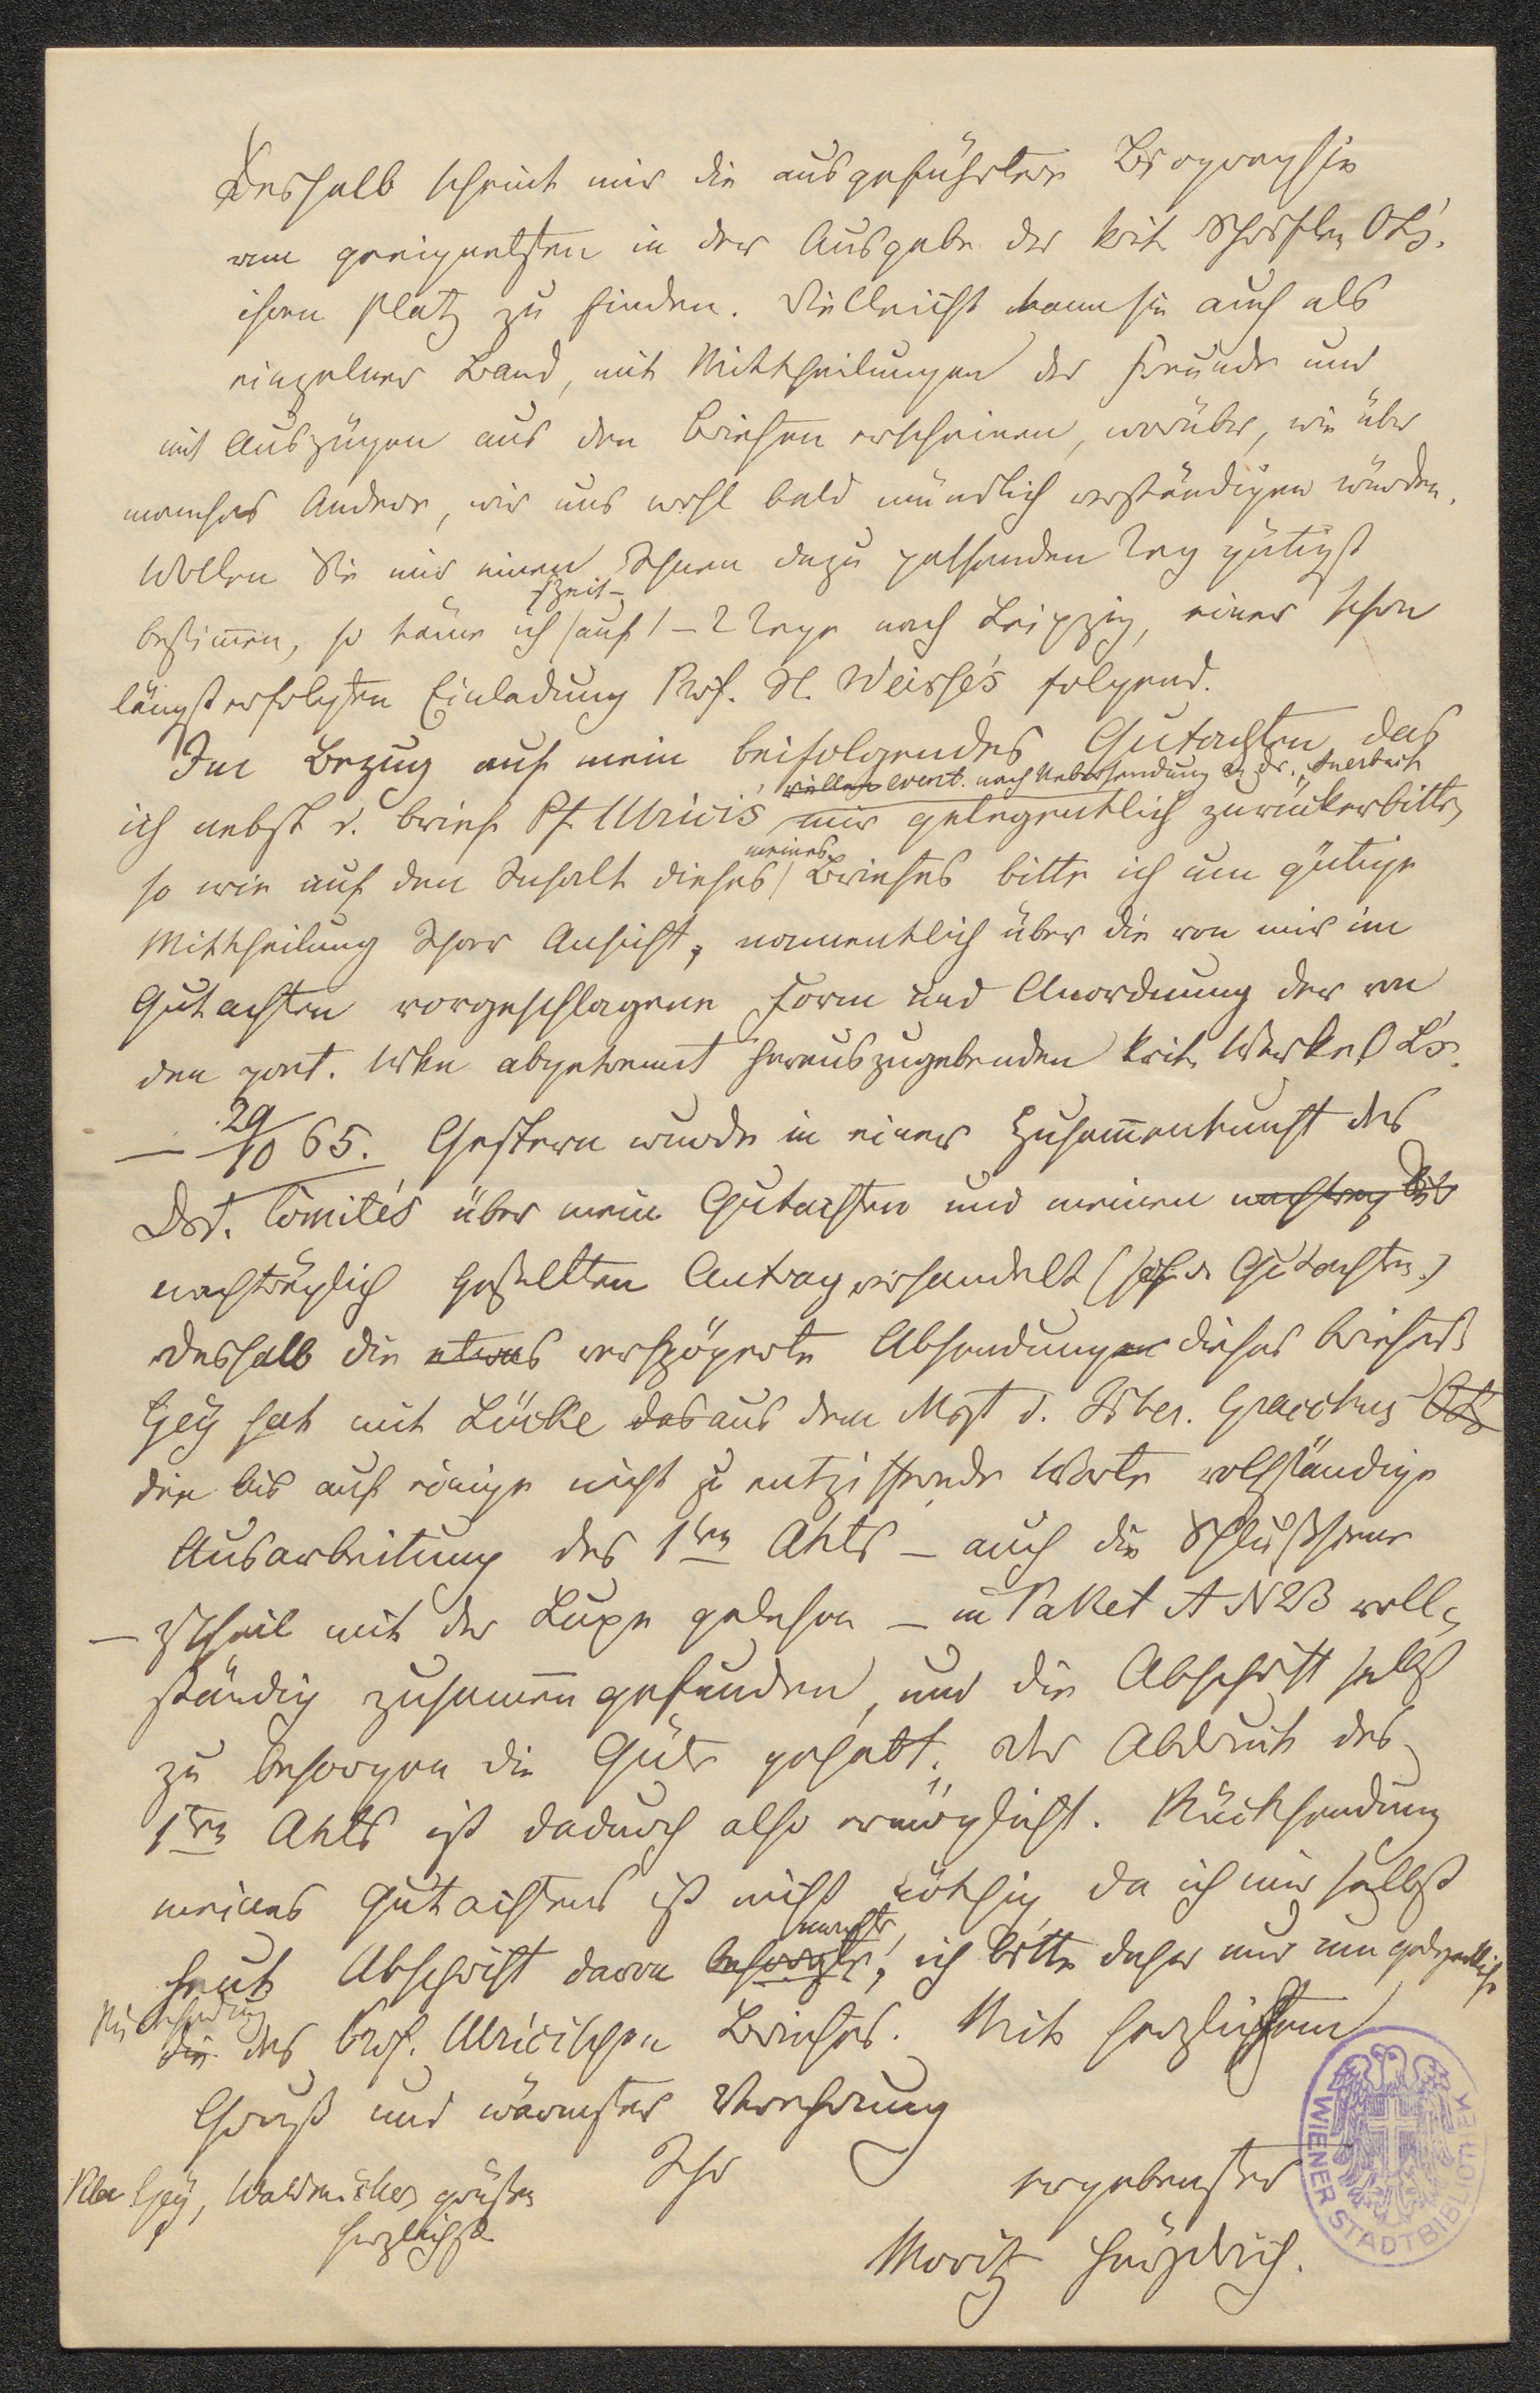 Deshalb scheint mir die ausgeführtere Biographie
am geeignetsten in der Ausgabe der krit. Schriften OL's.
ihren Platz zu finden. Vielleicht kann sie auch als
einzelner Band, mit Mittheilungen der Freunde und
mit Auszügen aus den Briefen erscheinen, worüber, wie über
manches Andere, wir uns wohl bald mündlich verständigen würden.
Wollen Sie mir einen Ihnen dazu passenden Tag gütigst
bestim̄en, so käme ich auf 1–2 Tage nach Leipzig, einer schon
längst erfolgten Einladung Prof. H. Weisse's folgend.
Im Bezug auf mein beifolgendes Gutachten das
event. nach Uebersendung an Dr. Auerbach
ich nebst d. Briefe Pf. Ulricis mir gelegentlich zurückerbitte,
meines
so wie auf den Inhalt dieses Briefes bitte ich um gütige
Mittheilung Ihrer Ansicht, namentlich über die von mir im
Gutachten vorgeschlagene Form und Anordnung der von
den poet. Wken abgetrennt herauszugebenden krit. Werke OL's.
— 29/10 65. Gestern wurde in einer Zusam̄enkunft des
Comité's über mein Gutachten und meinen nachtrag
nachträglich gestellten Antrag verhandelt (s. Gutachten.)
deshalb die etwas verzögerte Absendung dieses Briefes
Gey hat mit Lücke das aus dem Mspt d. Tiber. Gracchus
die bis auf einige nicht zu entziffernde Worte vollständige
Ausarbeitung des 1ten Akts – auch die Schlußscene
– z Theil mit der Lupe gelesen – in Paket A N 23 voll-
ständig zusam̄engefunden, und die Abschrift selbst
zu besorgen die Güte gehabt. Der Abdruck des
1ten Akts ist dadurch also ermöglicht. Rücksendung
meines Gutachtens ist nicht nöthig da ich mir selbst
machte
heut Abschrift davon besorgte; ich bitte daher nur um gelegentliche
Rücksendung
die des Prof. Ulricischen Briefes. Mit herzlichstem
Gruß und wärmster Verehrung
Ihr
ergebenster
Gey, Waldmüller grüßen
herzlichst
Moritz Heydrich.
WIENER STADTBIBLIOTHEK